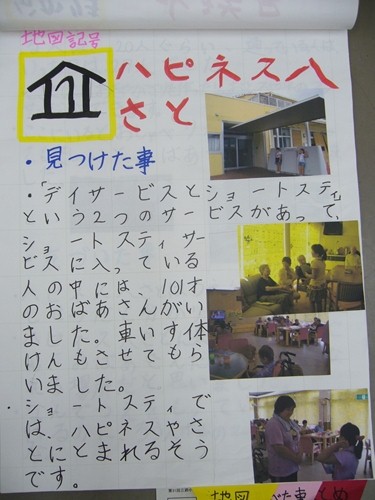 地図記号
ハピネス八
さと
・見つけた事
・「デイサービスとショートスティ」
という2つのサービスがあって、
ショートスティサー
ビスに入っている
人の中には、101才
のおばあさんがい
ました。車いす体
けんもさせてもら
いました。
・ショートスティで
は、ハピネスやさ
とにとまれるそう
です。
地図